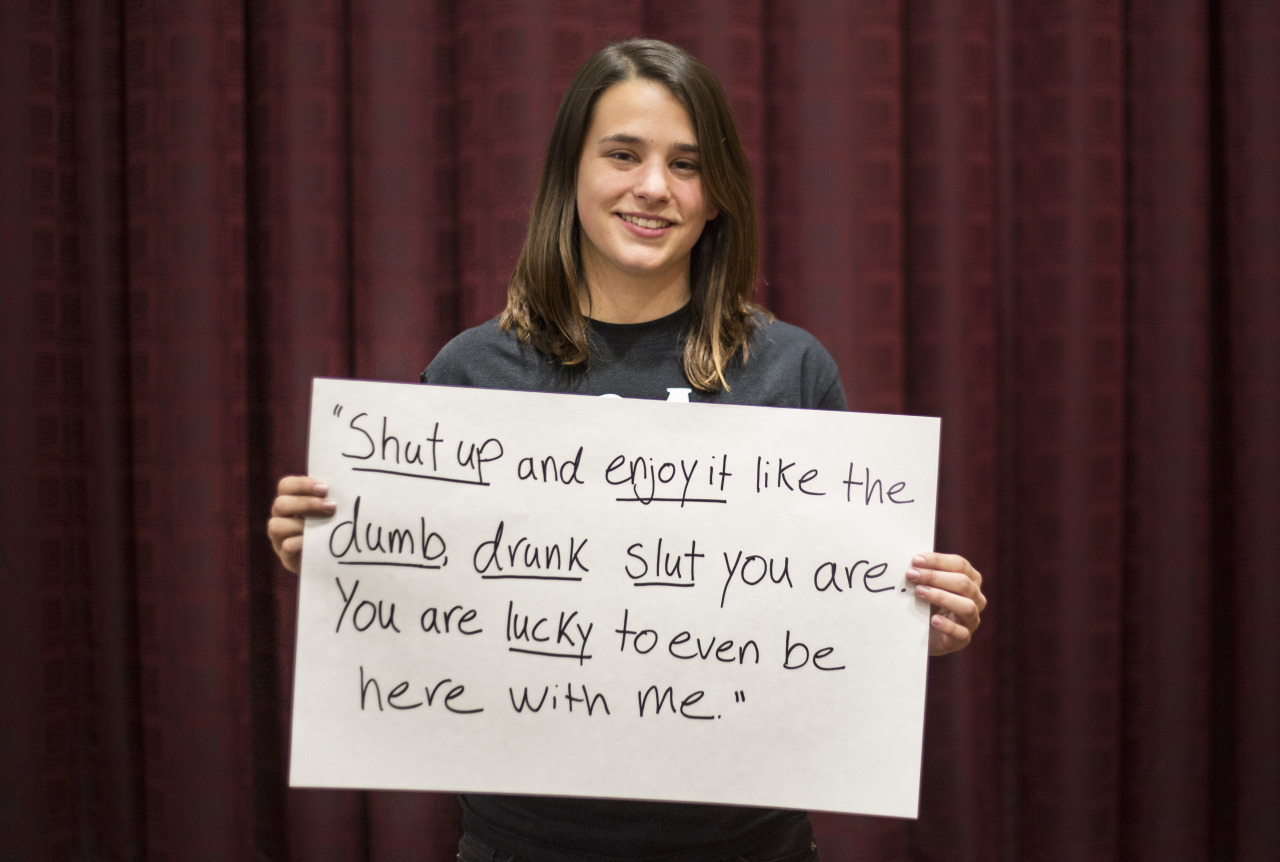 "Shut up and enjoy it like the
dumb, drunk slut you are.
You are lucky to even be
here with me."